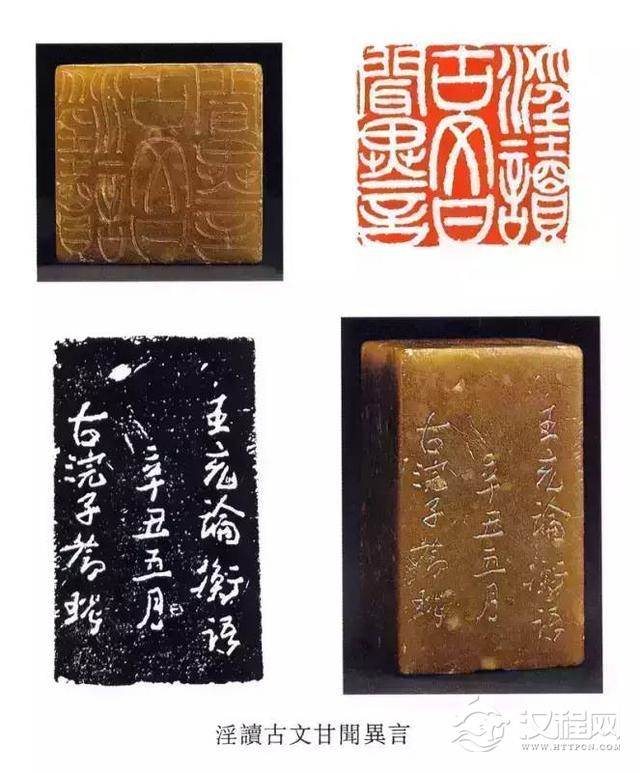 淫讀
古文甘
聞異言
王充論衡語
辛丑五月
古浣子鄧琰
王充論衡語
辛丑五月
古浣子鄧琰
淫讀古文甘聞異言
汉程网
WWW.HTTPCN.COM